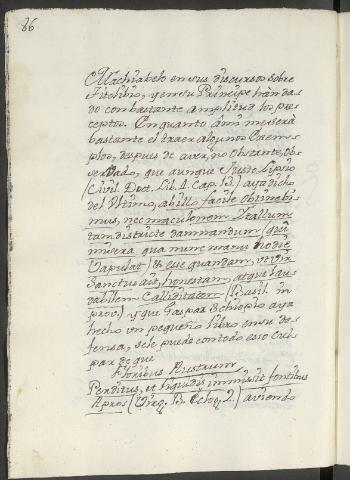 86
Machiabelo en sus discursos sobre
Titolibio, y en su Principe han da-
do con bastante amplitud los pre-
ceptos. En quanto à mi me serà
bastante el traer algunos Exem-
plos, despues de aver, no obstante, ob-
serbado, que aunque Justo Lipsio
(Civil. Dot. Lib. 4. Cap. 13.) aya dicho
del Vltimo, ab illo facile obtinebi-
mus, nec maculonem Itallum
tam districte damnandum (qui
misera qua nunc manu hodie
Vapulat) & esse quandam, vt vir
Sanctus ait, honestam, atque lau-
dabilem Calliditatem (Basil. in
prov.) y que Gaspar Schiopio aya
hecho vn pequeño libro en su de-
fensa, se le puede con todo esso cul-
par de que
Floribus Austrum
Perditus, et liquidis immissit fontibus
Apros (Virg. Eclog. 2.) aviendo